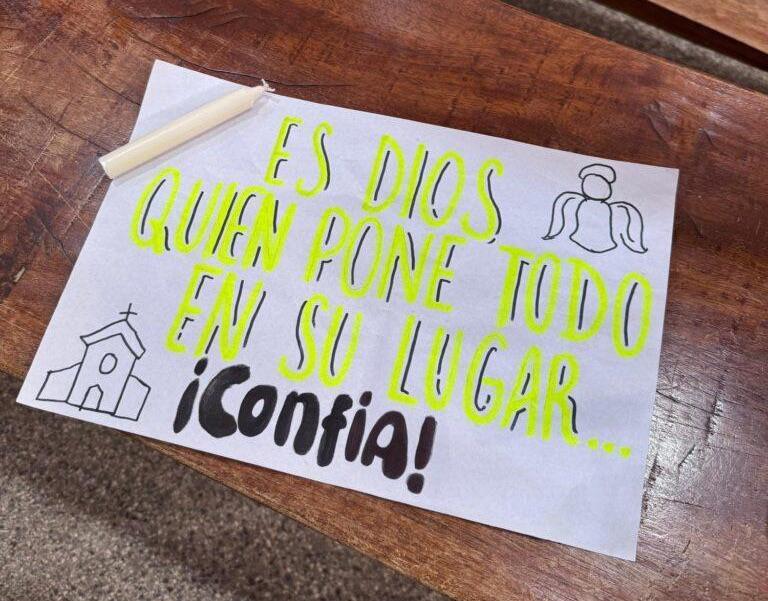 ES DIOS,
QUIEN PONE TODO
EN SU LUGAR....
¡ConfiA!